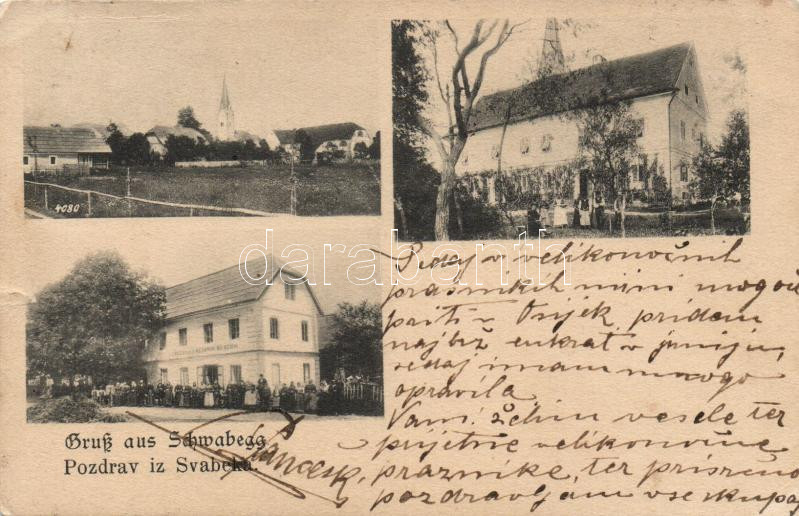 4080
darabanth.com
Gruß aus Schwabegg
Pozdrav iz Svabeka.
Sedaj v velikonočnih
praznikih mi ni mogoče
priti v Osjek, pridem
najbrž enkrat v juniju,
sedaj imam mnogo
opravila
Vam želim vesele ter
prijetne velikonočne
praznike, ter prisrčno
pozdravljam vse skupaj